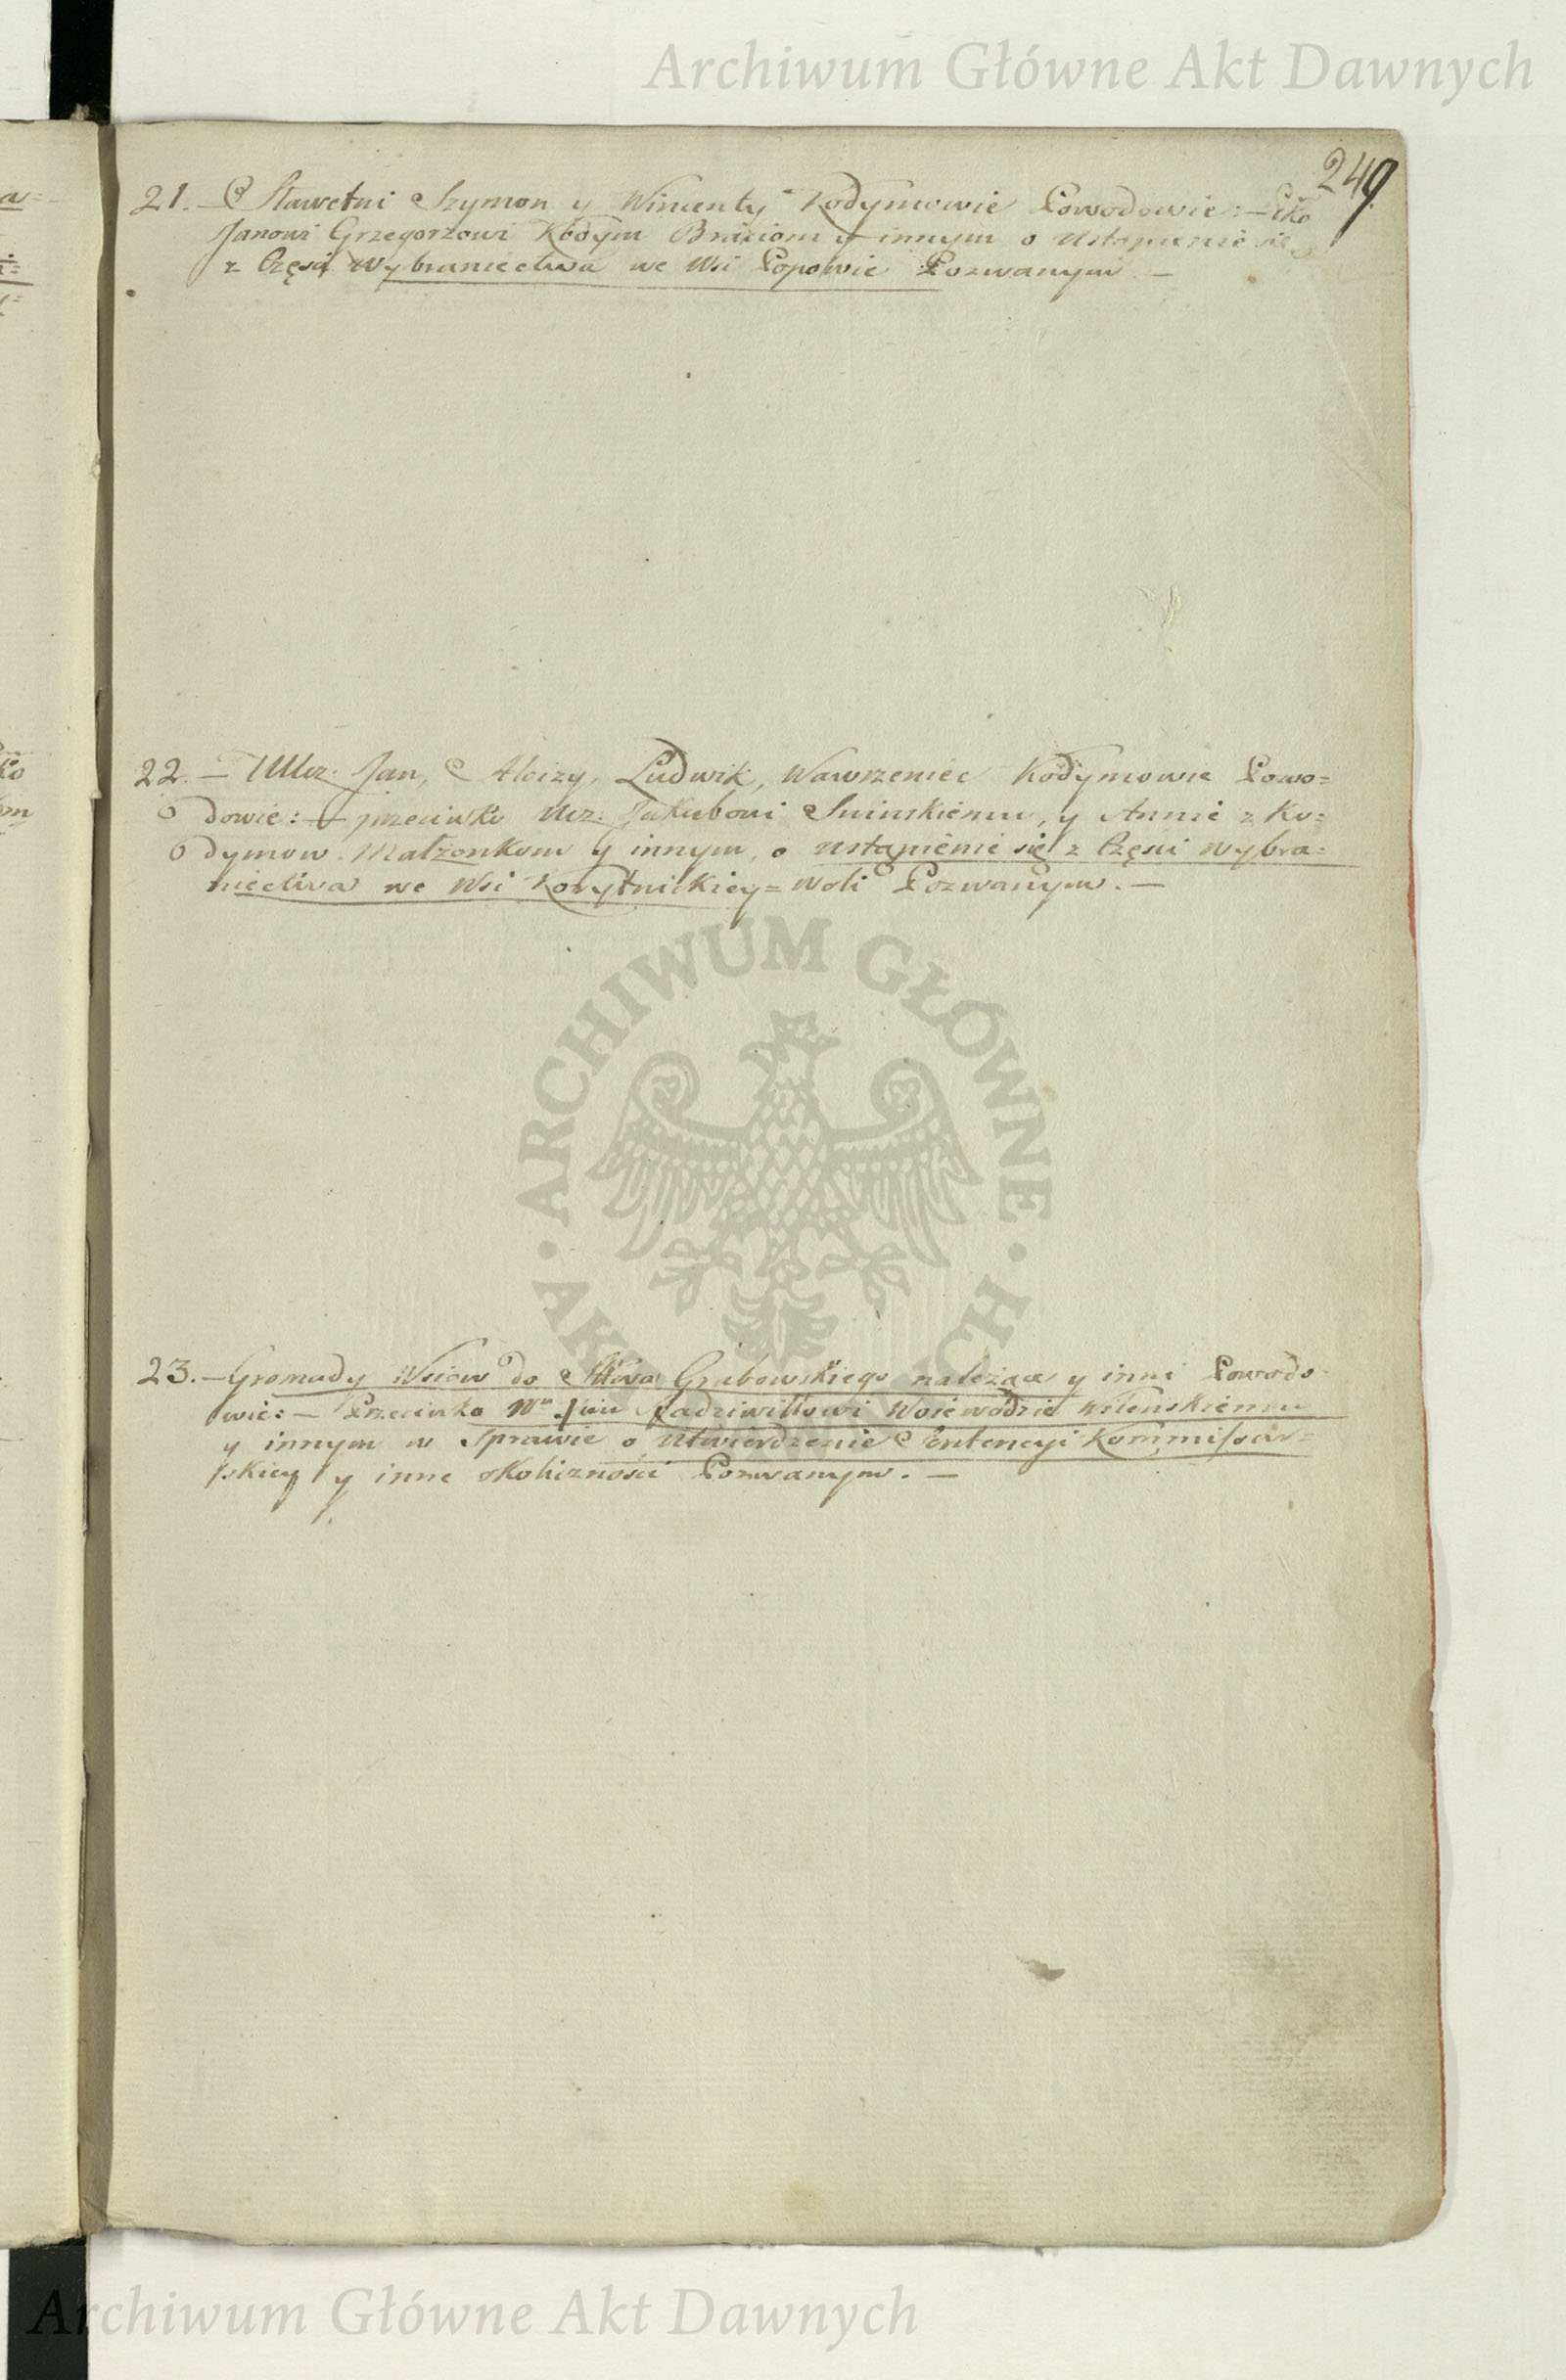 Archiwum Główne Akt Dawnych
249
21. — Sławetni Szymon y Wincenty Kodymowie Powodowie: — Pko
Janowi Grzegorzowi Kodym Braciom y innym o Ustąpienie się
z Części Wybraniectwa we Wsi Popowie Pozwanym. —
22. — Ucz: Jan, Aloizy, Ludwik, Wawrzeniec Kodymowie Powo=
dowie: — przeciwko Ucz: Jakubowi Sninskiemu, y Annie z Ko=
dymow Małżonkom y innym, o Ustąpienie się z Części wybra=
niectwa we Wsi Korytnickiey=Woli Pozwanym. —
23. — Gromady Wsiow do Grabowskiego należące y inni Powodo-
wie: — Przeciwko Radziwiłłowi Woiewodzie Wileńskiemu
y innym w Sprawie o Utwierdzenie Sentencyi Kommissar=
skiey y inne okoliczności Pozwanym. —
ARCHIWUM GŁÓWNE
Archiwum Główne Akt Dawnych